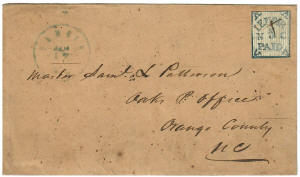 JAN
17
PAID
Master Saml L Patterson
Oaks P. Office
Orange County
NC